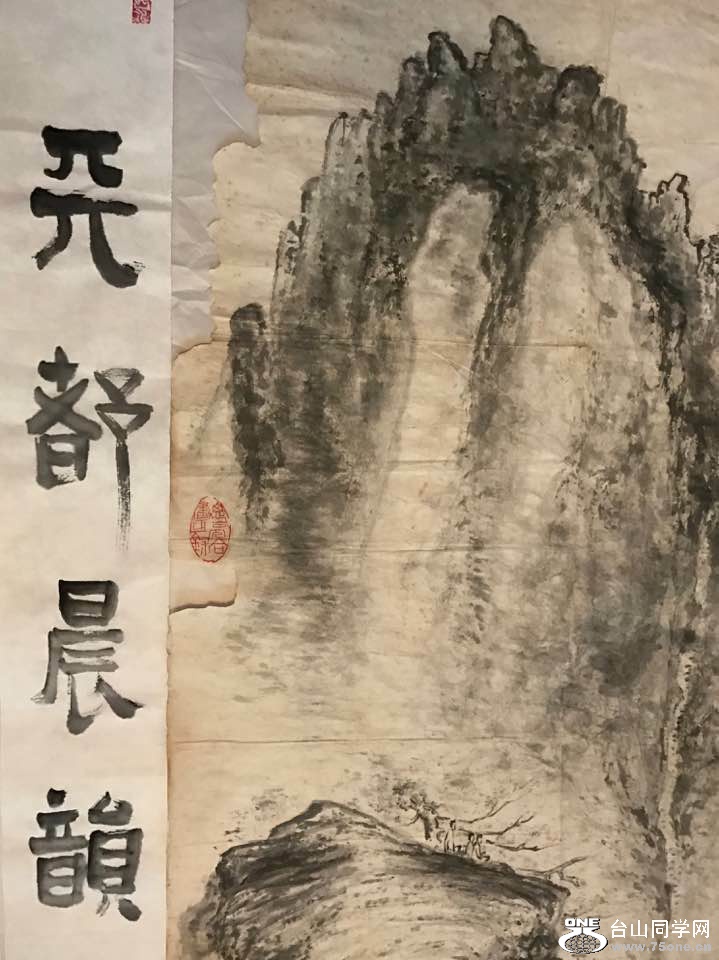 天都晨韻
ONE
75
台山同学网
www.75one.cn